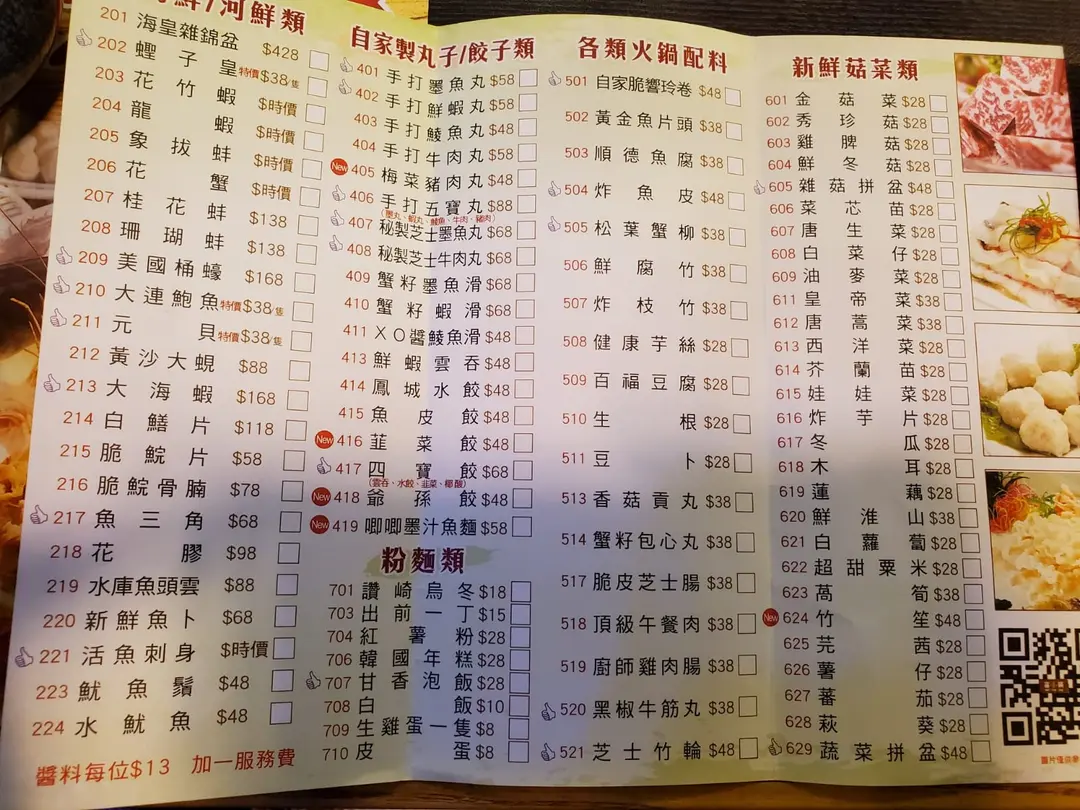 海鮮/河鮮類
201 海皇雜錦盆 $428
202 蟶子皇 特價$38/隻
203 花竹蝦 $時價
204 龍蝦 $時價
205 象拔蚌 $時價
206 花蟹 $時價
207 桂花蚌 $138
208 珊瑚蚌 $138
209 美國桶蠔 $168
210 大連鮑魚 特價$38/隻
211 元貝 特價$38/隻
212 黃沙大蜆 $88
213 大海蝦 $168
214 白鱔片 $118
215 脆鯇片 $58
216 脆鯇骨腩 $78
217 魚三角 $68
218 花膠 $98
219 水庫魚頭雲 $88
220 新鮮魚卜 $68
221 活魚刺身 $時價
223 魷魚鬚 $48
224 水魷魚 $48
醬料每位$13 加一服務費
自家製丸子/餃子類
401 手打墨魚丸 $58
402 手打鮮蝦丸 $58
403 手打鯪魚丸 $48
404 手打牛肉丸 $58
New 405 梅菜豬肉丸 $48
406 手打五寶丸 $88
(墨丸、蝦丸、鯪魚、牛肉、豬肉)
407 秘製芝士墨魚丸 $68
408 秘製芝士牛肉丸 $68
409 蟹籽墨魚滑 $68
410 蟹籽蝦滑 $68
411 XO醬鯪魚滑 $48
413 鮮蝦雲吞 $48
414 鳳城水餃 $48
415 魚皮餃 $48
New 416 韮菜餃 $48
417 四寶餃 $68
(雲吞、水餃、韮菜、椰酸)
New 418 爺孫餃 $48
New 419 唧唧墨汁魚麵 $58
粉麵類
701 讚崎烏冬 $18
703 出前一丁 $15
704 紅薯粉 $28
706 韓國年糕 $28
707 甘香泡飯 $28
708 白飯 $10
709 生雞蛋一隻 $8
710 皮蛋 $8
各類火鍋配料
501 自家脆響玲卷 $48
502 黃金魚片頭 $38
503 順德魚腐 $38
504 炸魚皮 $48
505 松葉蟹柳 $38
506 鮮腐竹 $38
507 炸枝竹 $38
508 健康芋絲 $28
509 百福豆腐 $28
510 生根 $28
511 豆卜 $28
513 香菇貢丸 $38
514 蟹籽包心丸 $38
517 脆皮芝士腸 $38
518 頂級午餐肉 $38
519 廚師雞肉腸 $38
520 黑椒牛筋丸 $38
521 芝士竹輪 $48
新鮮菇菜類
601 金菇菜 $28
602 秀珍菇 $28
603 雞脾菇 $28
604 鮮冬菇 $28
605 雜菇拼盆 $48
606 菜芯苗 $28
607 唐生菜 $28
608 白菜仔 $28
609 油麥菜 $28
611 皇帝菜 $38
612 唐蒿菜 $38
613 西洋菜 $28
614 芥蘭苗 $28
615 娃娃菜 $28
616 炸芋片 $28
617 冬瓜 $28
618 木耳 $28
619 蓮藕 $28
620 鮮淮山 $38
621 白蘿蔔 $28
622 超甜粟米 $28
623 萵筍 $38
New 624 竹笙 $48
625 芫茜 $28
626 薯仔 $28
627 蕃茄 $28
628 萩葵 $28
629 蔬菜拼盆 $48